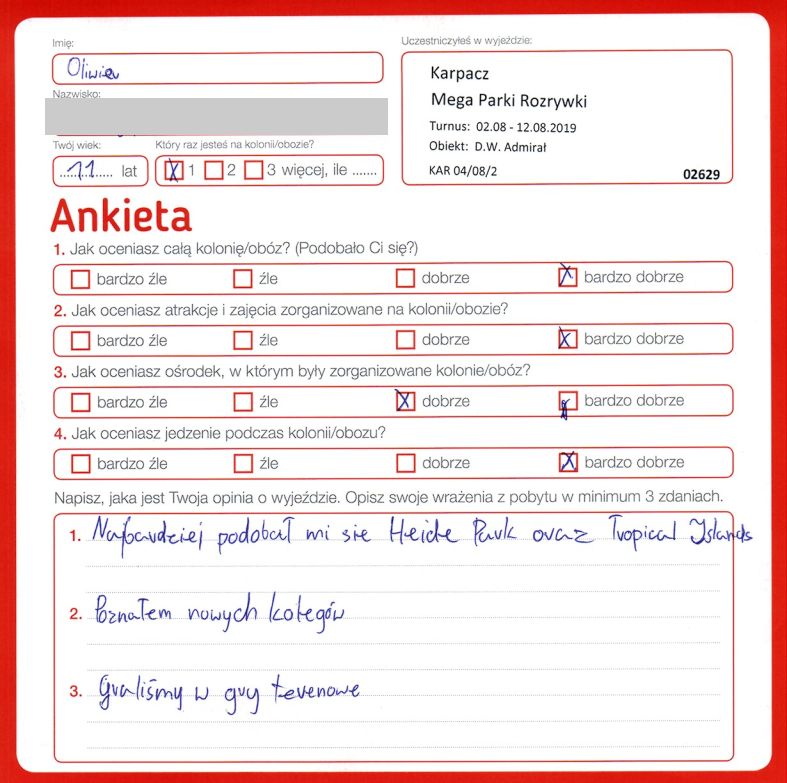 Imię:
Oliwier
Uczestniczyłeś w wyjeździe:
Karpacz
Mega Parki Rozrywki
Turnus: 02.08 - 12.08.2019
Obiekt: D.W. Admirał
KAR 04/08/2
02629
Nazwisko:
Twój wiek:
11 lat
Który raz jesteś na kolonii/obozie?
X 1 2 3 więcej, ile .......
Ankieta
1. Jak oceniasz całą kolonię/obóz? (Podobało Ci się?)
bardzo źle źle dobrze X bardzo dobrze
2. Jak oceniasz atrakcje i zajęcia zorganizowane na kolonii/obozie?
bardzo źle źle dobrze X bardzo dobrze
3. Jak oceniasz ośrodek, w którym były zorganizowane kolonie/obóz?
bardzo źle źle X dobrze bardzo dobrze
4. Jak oceniasz jedzenie podczas kolonii/obozu?
bardzo źle źle dobrze X bardzo dobrze
Napisz, jaka jest Twoja opinia o wyjeździe. Opisz swoje wrażenia z pobytu w minimum 3 zdaniach.
1. Najbardziej podobał mi sie Heide Park oraz Tropical Islands
2. Poznałem nowych kolegów
3. Graliśmy w gry terenowe